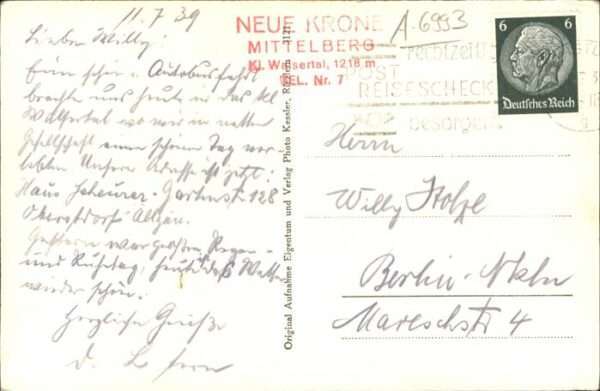 11.7.39
Lieber Willy!
Eine schöne Autobusfahrt
brachte uns heute in das kl
Walsertal wo wir in netter
Gesellschaft einen schönen Tag ver
lebten. Unsere Adresse ist jetzt:
Haus Scheurer - Gartenstr. 128
Oberstdorf Allgäu.
Gestern war großer Regen-
und Ruhetag, heute das Wetter
wieder schön.
Herzliche Grüße
NEUE KRONE
MITTELBERG
Kl. Walsertal, 1218 m
TEL. Nr. 7
A-6993
rechtzeitig
POST
REISESCHECK
besorgen
6 6
Deutsches Reich
Original Aufnahme Eigentum und Verlag Photo Kessler, 1121
Herrn
Willy Stolze
Berlin-Nkln
Mareschstr 4